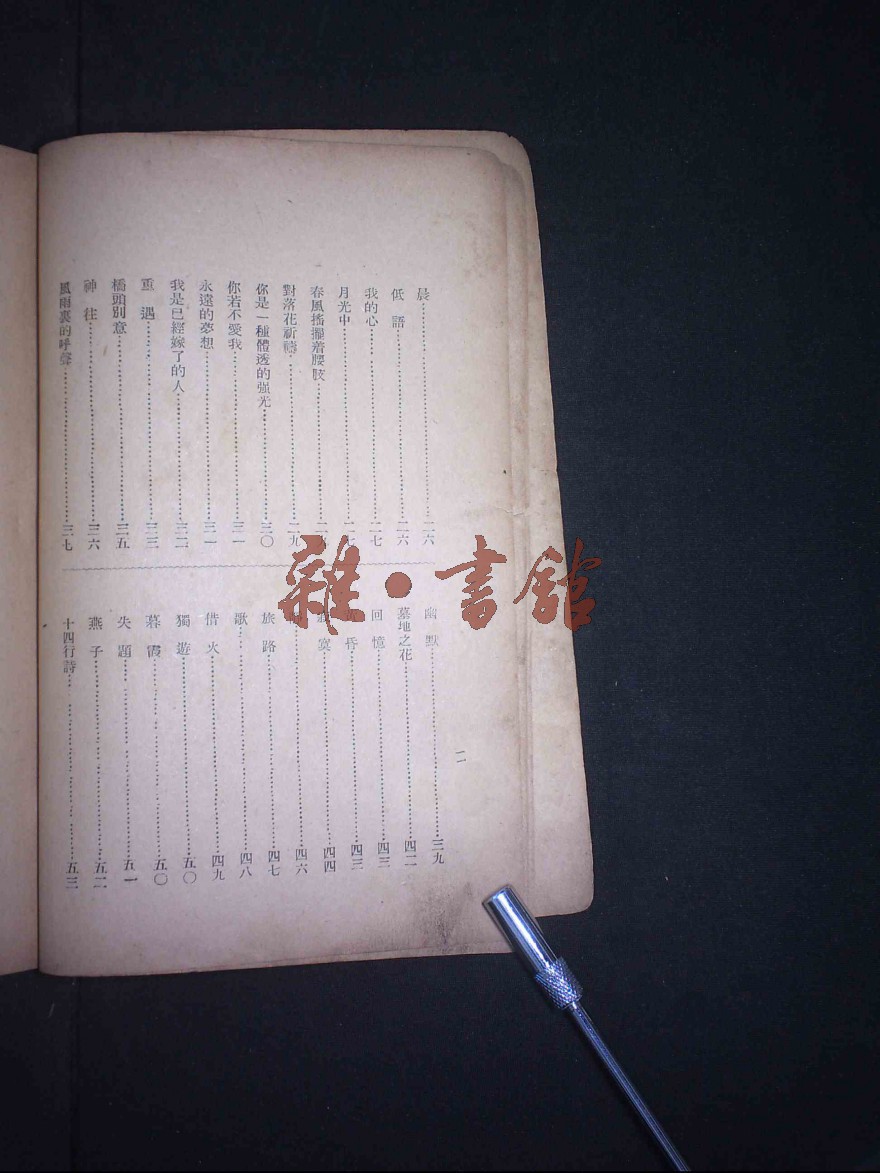 晨……二六
低語……二六
我的心……二七
月光中……二七
春風搖擺着腰肢……二
對落花祈禱……二九
你是一種體透的强光……三〇
你若不愛我……三一
永遠的夢想……三一
我是已經嫁了的人……三二
重遇……三三
橋頭別意……三五
神往……三六
風雨裏的呼聲……三七
幽默……三九
墓地之花……四二
回憶……四三
昏……四三
寞……四四
四六
旅路……四七
歌……四八
借火……四九
獨遊……五〇
暮霞……五〇
失題……五一
燕子……五二
十四行詩……五三
二
雜·書館